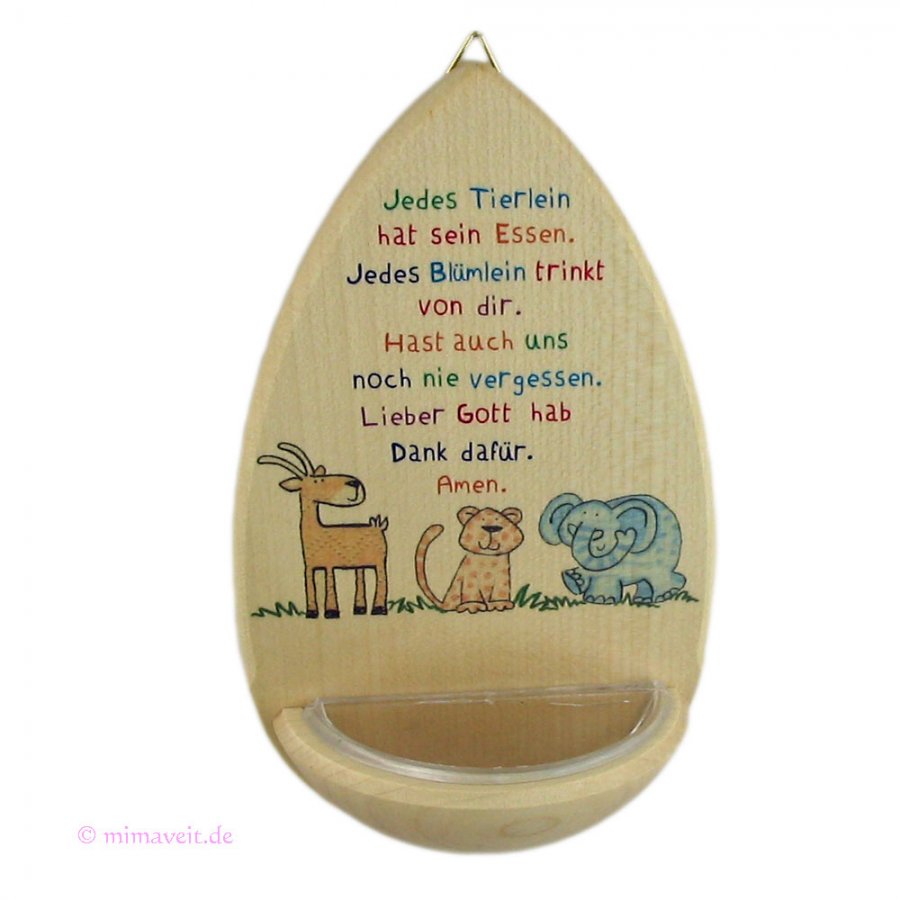 Jedes Tierlein
hat sein Essen.
Jedes Blümlein trinkt
von dir.
Hast auch uns
noch nie vergessen.
Lieber Gott hab
Dank dafür.
Amen.
© mimaveit.de